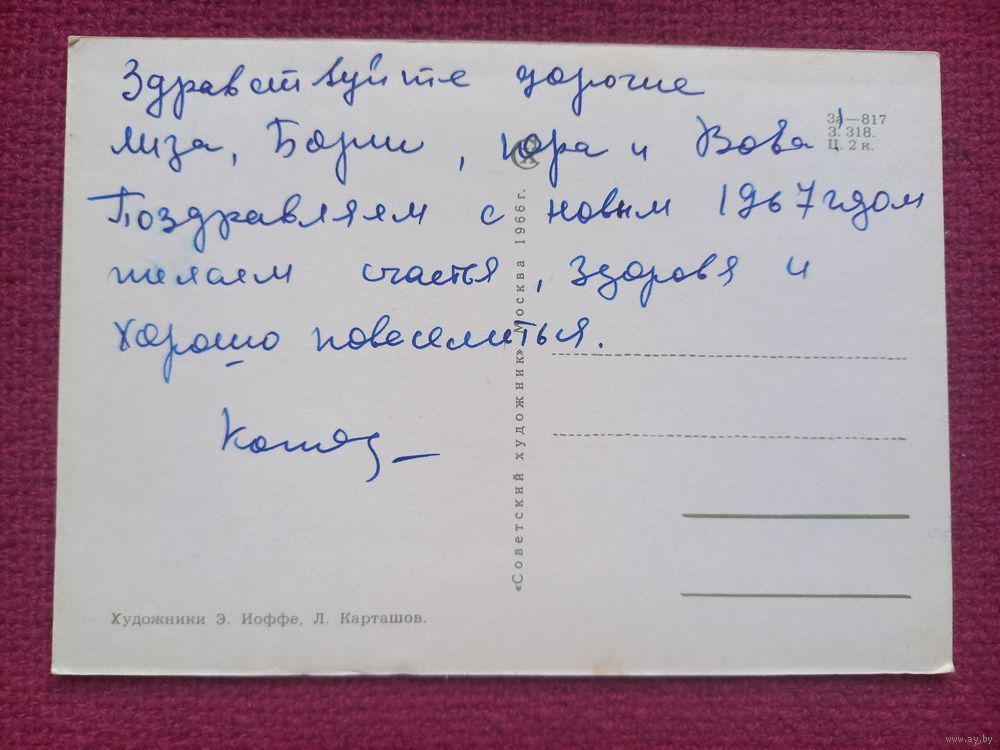 Здравствуйте дорогие
Лиза, Борис, Юра и Вова!
Поздравляем с новым 1967 годом
желаем счастья, здоровя и
хорошо повеселиться.
За—817
З. 318.
Ц. 2 к.
«Советский художник» Москва 1966 г.
Художники Э. Иоффе, Л. Карташов.
www.ay.by